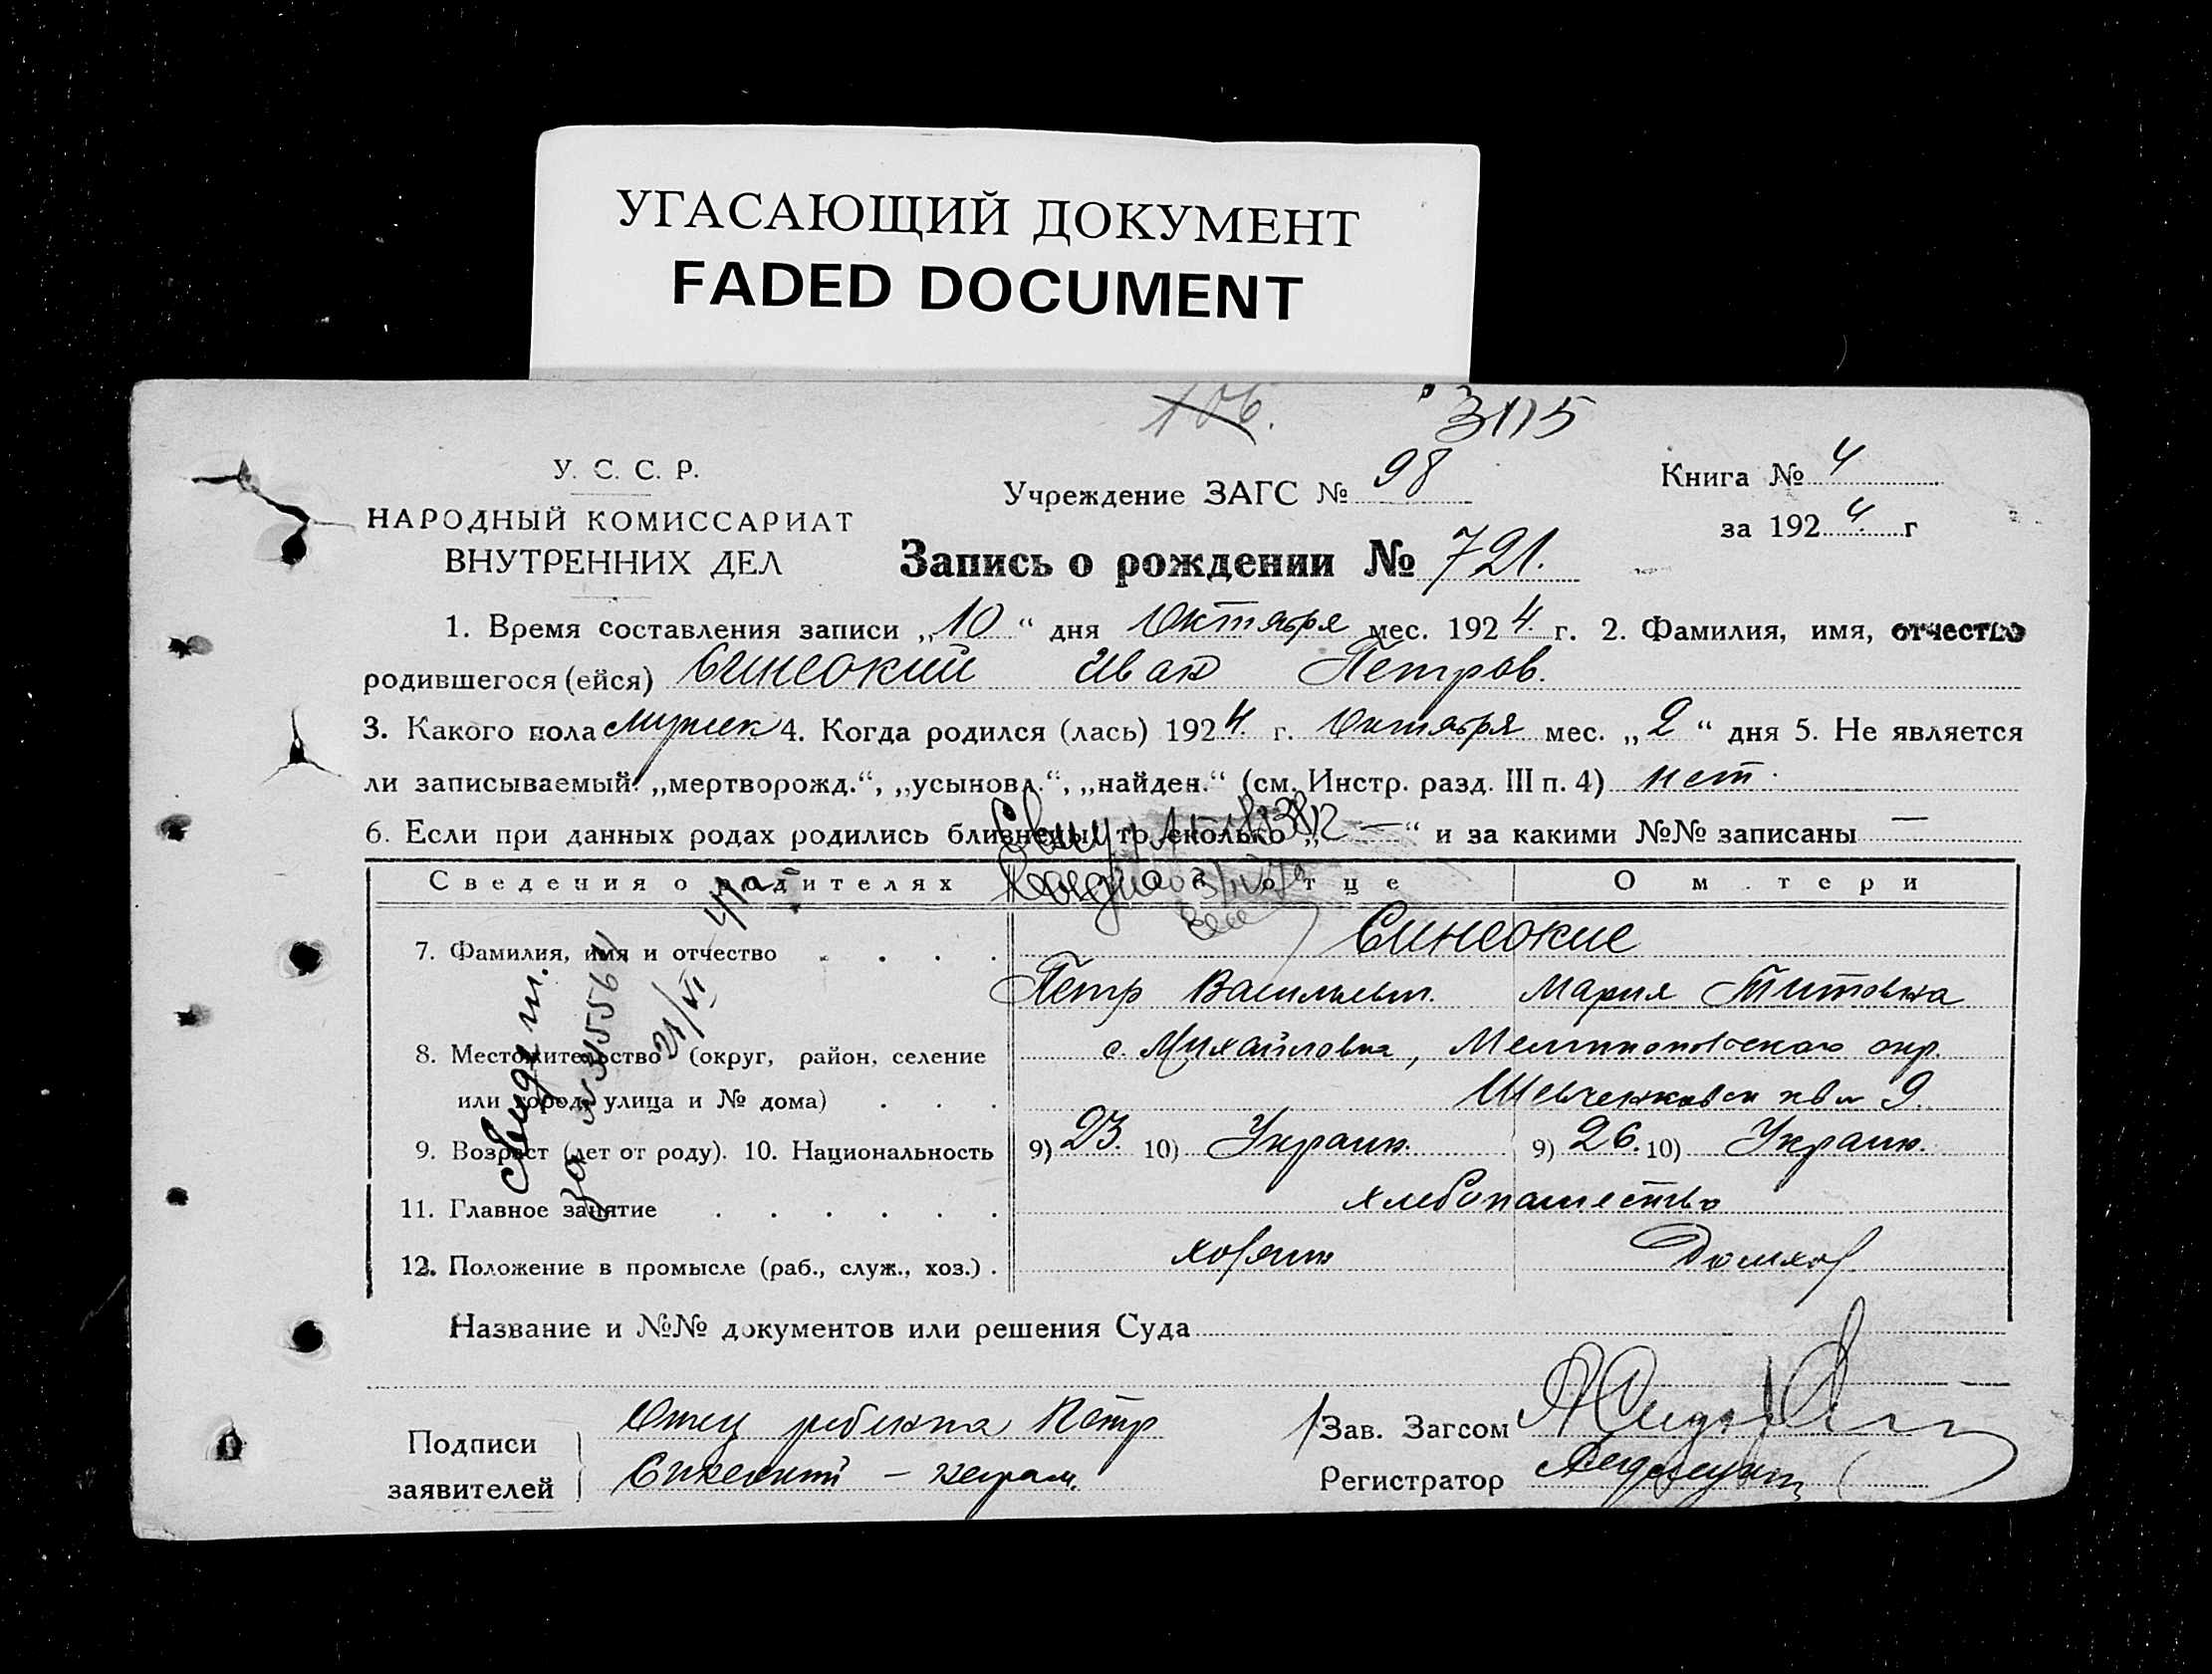 УГАСАЮЩИЙ ДОКУМЕНТ
FADED DOCUMENT
106.
3115
У. С. С. Р.
НАРОДНЫЙ КОМИССАРИАТ
ВНУТРЕННИХ ДЕЛ
Учреждение ЗАГС № 98
Книга № 4
за 1924 г
Запись о рождении № 721.
1. Время составления записи „10“ дня Октября мес. 1924 г. 2. Фамилия, имя, отчество
родившегося (ейся) Синеокий Иван Петров.
3. Какого пола мужск 4. Когда родился (лась) 1924 г. Октября мес. „2“ дня 5. Не является
ли записываемый: „мертворожд.“, „усыновл.“, „найден.“ (см. Инстр. разд. III п. 4) нет.
6. Если при данных родах родились близнецы, то сколько „—“ и за какими №№ записаны —
Сведения о родителях
О отце
О матери
7. Фамилия, имя и отчество . . . .
Синеокие
Петр Васильев.
Мария Титовна
8. Местожительство (округ, район, селение
или город, улица и № дома) . . .
с. Михайловка, Мелитопольского окр.
Шевченковск кв 9.
9. Возраст (лет от роду). 10. Национальность
9) 23. 10) Украин.
9) 26. 10) Украин.
11. Главное занятие . . . . . .
хлебопашество
12. Положение в промысле (раб., служ., хоз.) .
хозяин
Домхоз
Название и №№ документов или решения Суда
Подписи
заявителей
Отец ребенка Петр
Синеокий – неграм.
Зав. Загсом
Регистратор